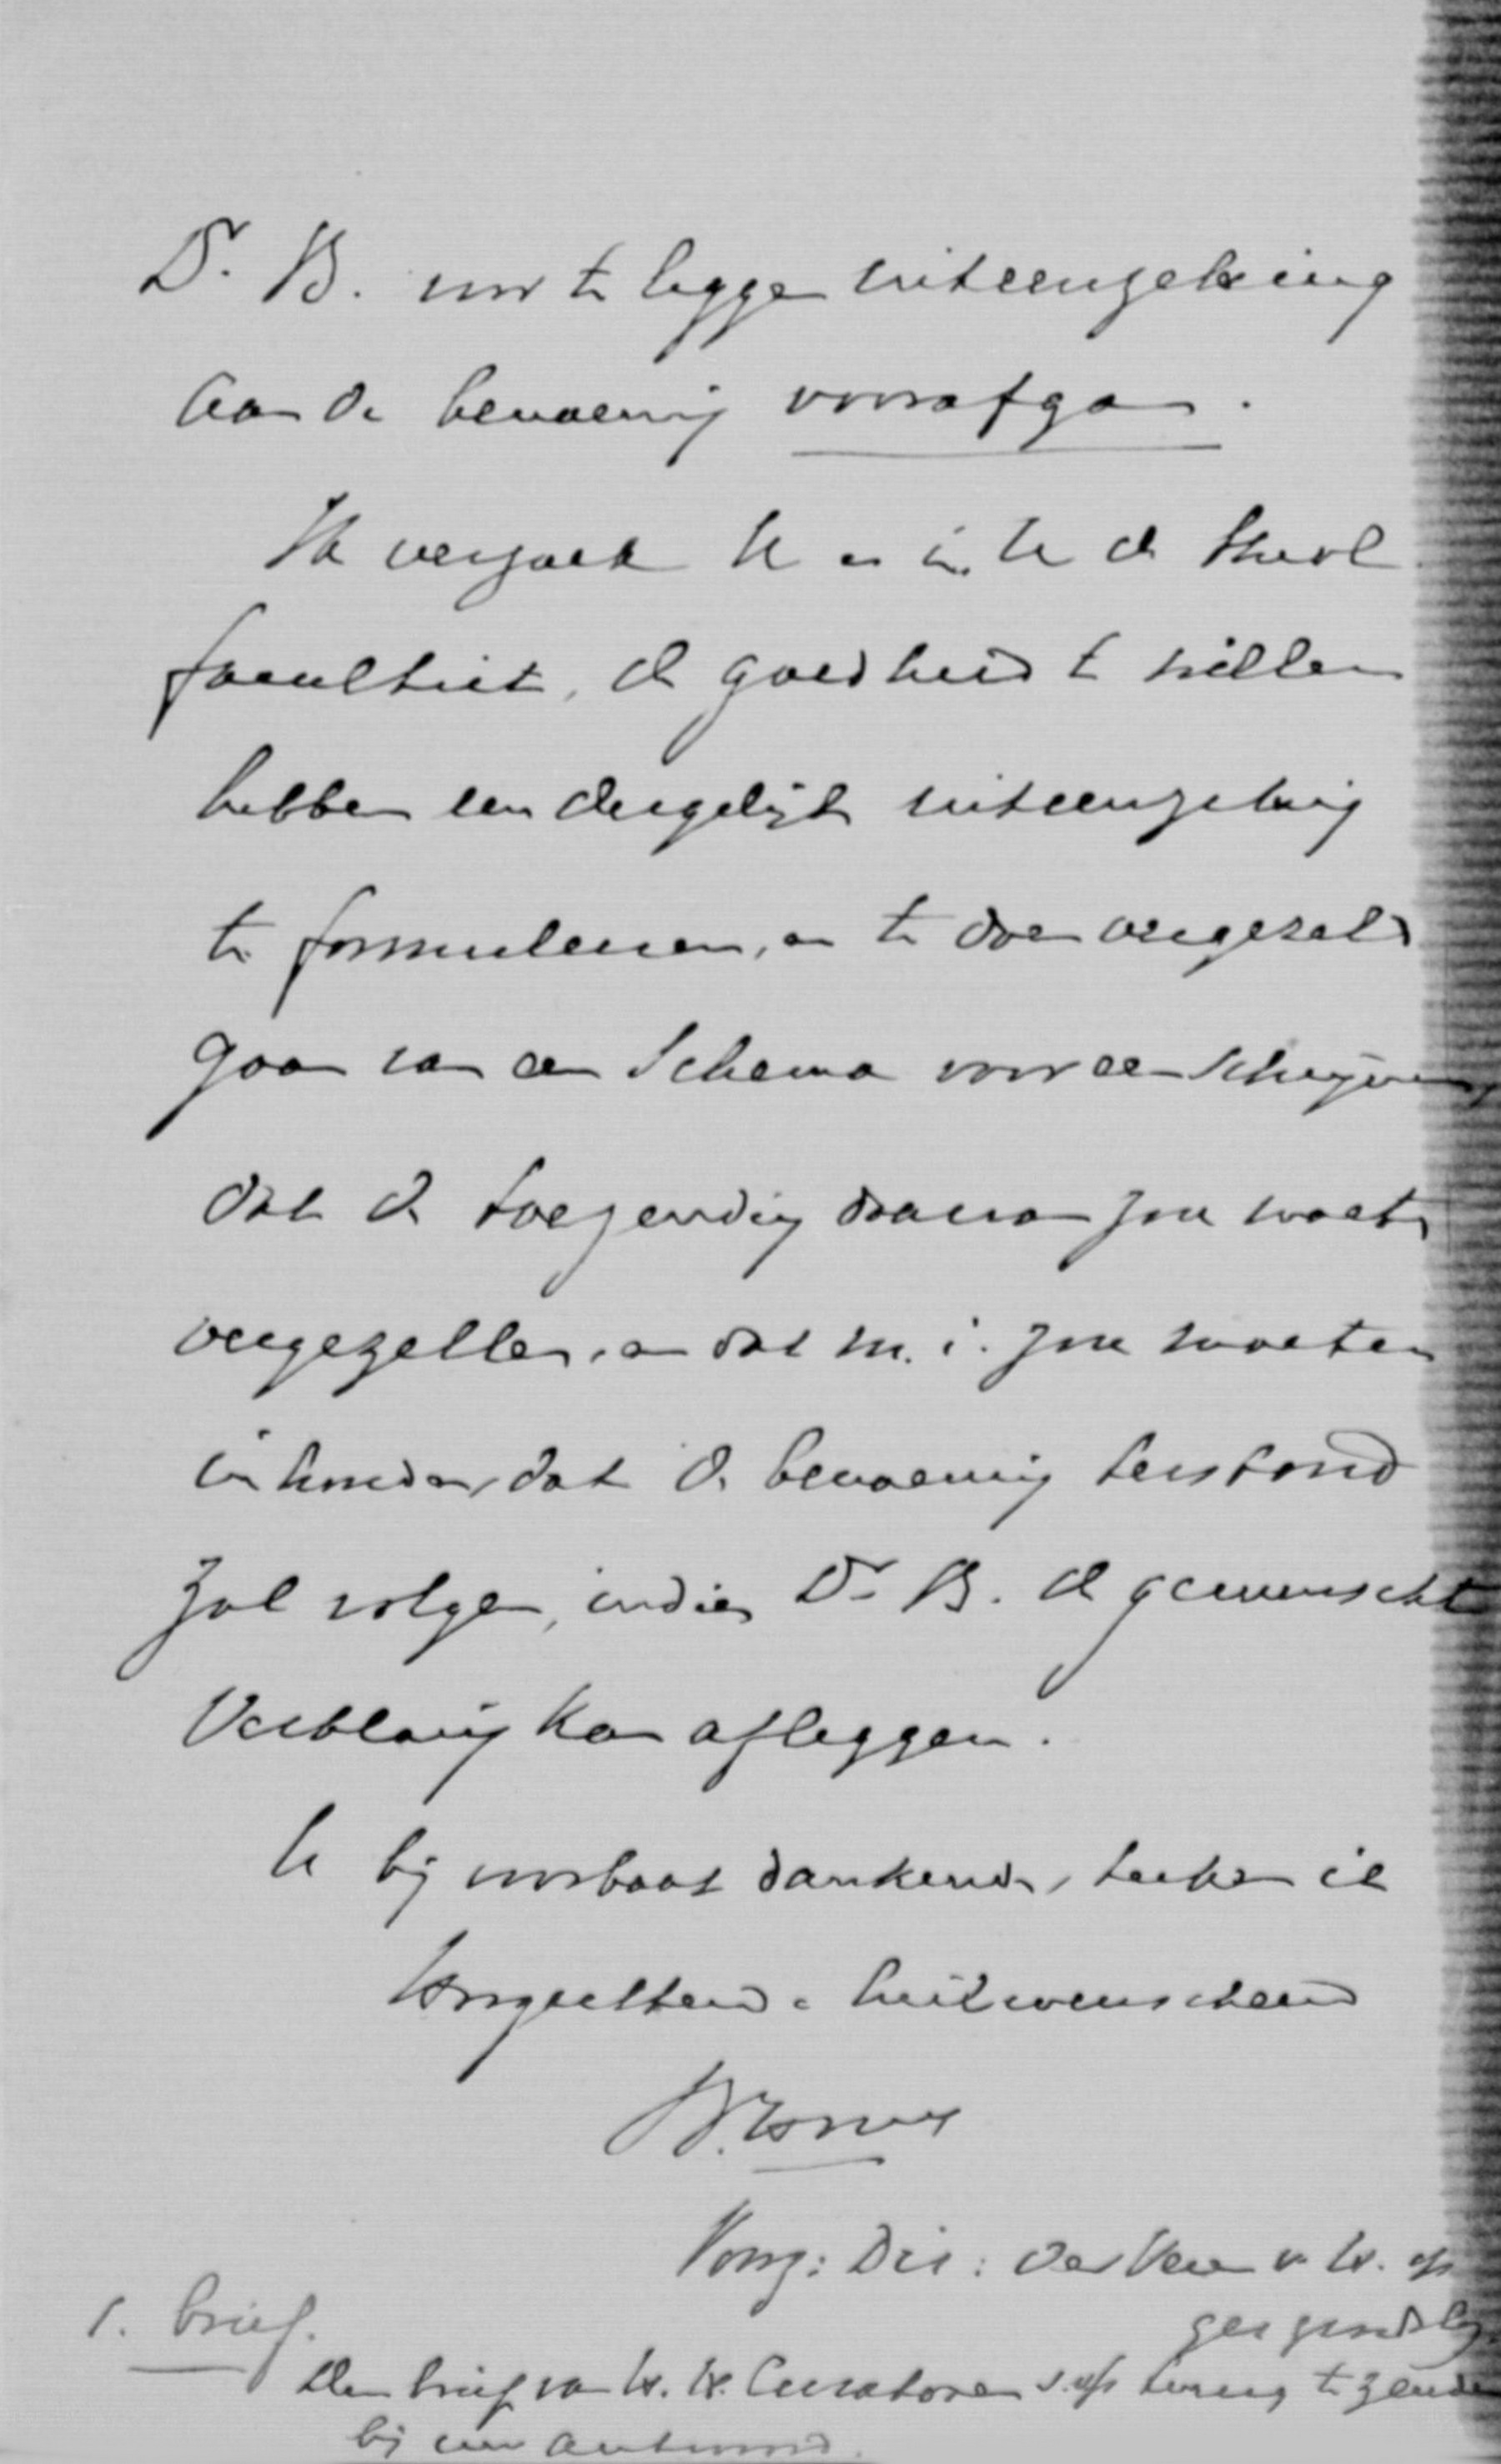 Dr. B. voor te leggen uiteenzetting
aan de benoeming voorafgaan.
Ik verzoek U en in U de Theol
faculteit, de goedheid te willen
hebben een dergelijke uiteenzetting
te formuleeren, en te doen vergezeld
gaan van een schema voor een schrijven,
dat de toezending daarvan zou moeten
vergezellen, en dat m. i. zou moeten
inhouden, dat de benoeming terstond
zal volgen, indien Dr. B. de gewenschte
Verklaring kan afleggen.
U bij voorbaat dankende, teeken ik
Hoogachtend en heilwenschend
Voorz: Dir: der Ver v. H. O.
geref grondslag
1. brief.
Den brief van H. H. Curatoren s.v.p. terug te zenden
bij uw antwoord.